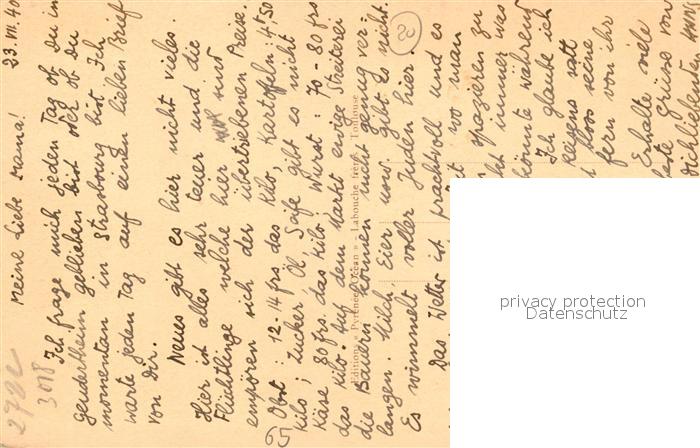 23. VII. 40
Meine liebe Mama!
Ich frage mich jeden Tag ob Du in
Gendertheim geblieben bist oder ob Du
momentan in Strasbourg bist. Ich
warte jeden Tag auf einen lieben Brief
von Dir.
Neues gibt es hier nicht vieles.
Hier ist alles sehr teuer und die
Flüchtlinge welche hier sind
empören sich der übertriebenen Preise.
Obst: 12-14 frs das Kilo, Kartoffeln 4,50
Kilo; Zucker, Öl, Seife gibt es nicht
Käse, 80 frs. das Kilo. Wurst: 70-80 frs
das Kilo. Auf dem Markt ewige Streiterei
die Bauern können nicht genug ver-
langen. Milch, Eier usw. gibt es nicht.
Es wimmelt voller Juden hier.
Das Wetter ist prachtvoll und es
wo man
spazieren zu
immer was
könnte während
Ich glaube ich
Reigens satt
bloss seine
fern von ihr
Erhalte viele
Grüsse von
3018
Editions « Pyrénées-Océan » - Labouche frères, Toulouse
privacy protection
Datenschutz